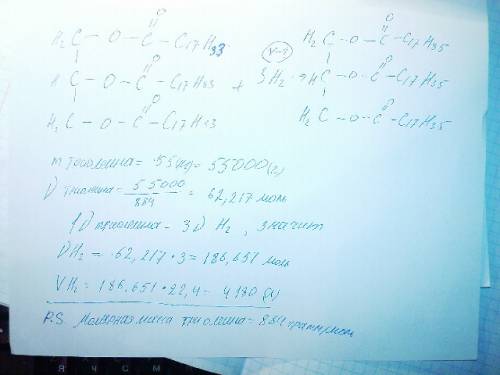 O O
H2C - O - C - C17H33 H2C - O - C - C17H35
O O
HC - O - C - C17H33 + 3H2 → HC - O - C - C17H35
O O
H2C - O - C - C17H33 H2C - O - C - C17H35
m триолеина = 55(кг) = 55000(г)
ν триолеина = 55000/884 = 62,217 моль
1ν триолеина - 3ν H2, значит
νH2 = 62,217 · 3 = 186,651 моль
VH2 = 186,651 · 22,4 = 4180 (л)
P.S. Молярная масса триолеина = 884 грамм/моль
Я Ч С М